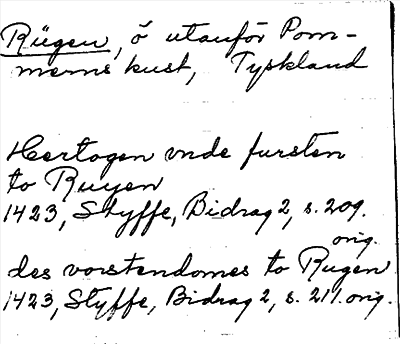 Rügen, ö utanför Pom-
merns kust, Tyskland
Hertogen vnde fursten
to Ruyen
1423, Styffe, Bidrag 2, s. 209.
orig.
des vorstendomes to Rugen
1423, Styffe, Bidrag 2, s. 211. orig.